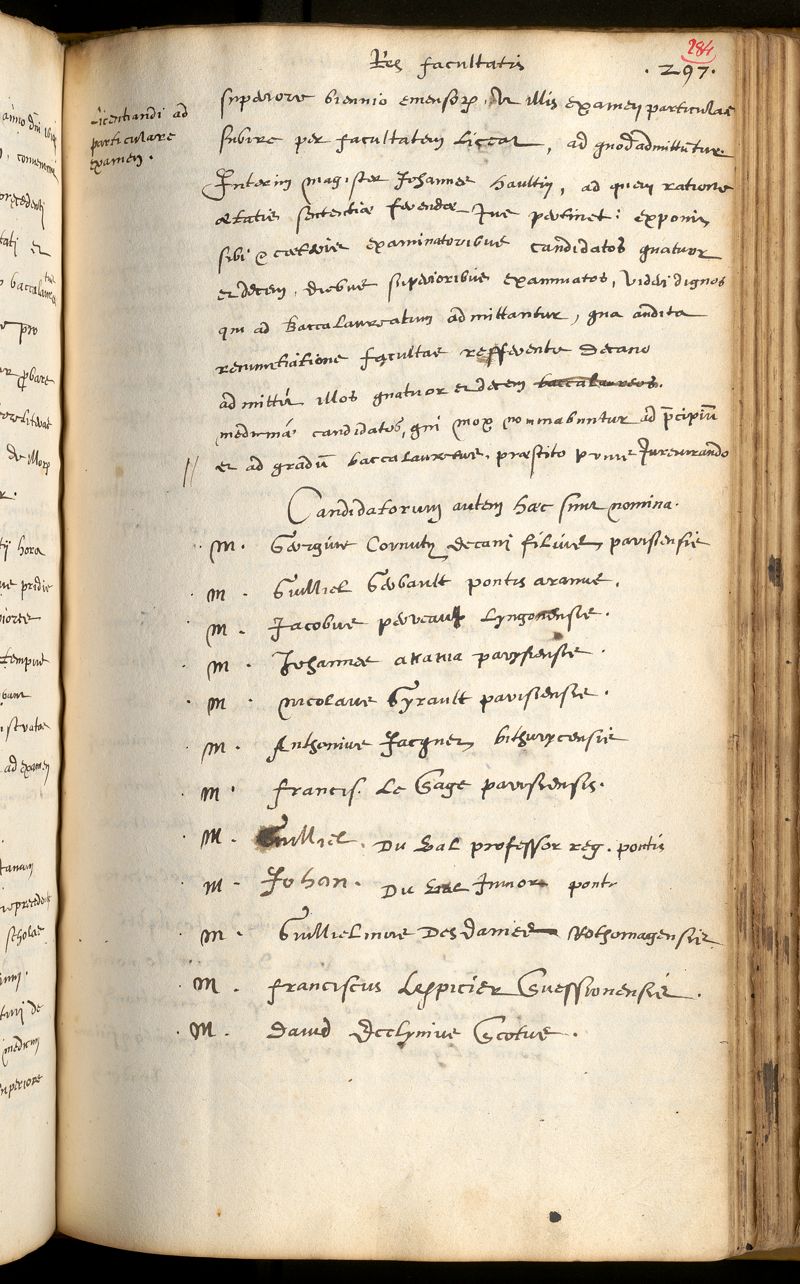 284
Res facultatis
. 297 .
Licentiandi ad
particulare
examen .
superiore biennio emensor, ut illis examen particulare
subire per facultatem liceat, ad quod admittuntur.
Interim magister Johannes haultin, ad quem ratione
ætatis sententiæ ferendæ jus pertinet : exponit
sibi & cæteris examinatoribus candidatos quatuor
et decem, diebus superioribus examinatos, videri dignos
qui ad baccalaureatum admittantur, qua audita
renuntiatione facultas refferente decano
admittit illos quatuor et decem baccalaureos.
medicinæ candidatos, qui mox nominabuntur ad pricipiū
et ad gradū baccalaureatus, præstito prius jurejurando
Candidatorum autem hæc sunt nomina.
. M . Georgius Cornuty decani filius parisiensis
. M . Guilliel Gebault pontis aranus.
. M . Jacobus perreault Lyngonensis .
. M . Johannes akakia parysiensis .
. M . Nicolaus Gyrault parisiensis .
. M . Anthonius Jacques bithurycensis
. M . francis. Le Gage parisiensis.
. M . Guilliel. Du Val professor reg. pontis
. M . Johan. Du Val Junior pont
. M . Guillielmus Des Dames Rothomagensis
. M . franciscus Lespicier Suessionensis .
. M . David Scotus .